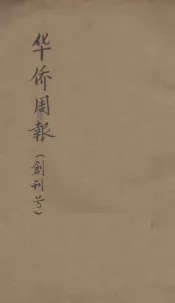 华侨周報
(創刊号)